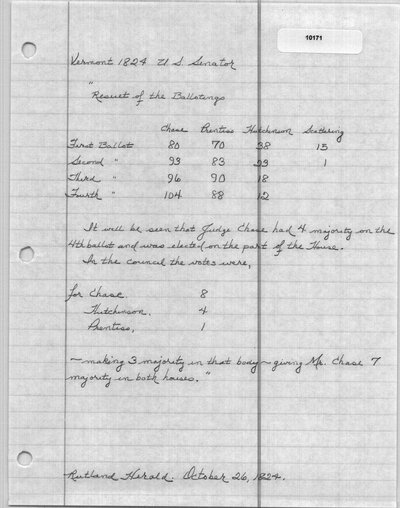 10171
Vermont 1824 U.S. Senator
"
Result of the Ballotings
Chase Prentiss Hutchinson Scattering
First Ballot 80 70 38 15
Second " 93 83 23 1
Third " 96 90 18
Fourth " 104 88 12
It will be seen that Judge Chase had 4 majority on the
4th ballot and was elected on the part of the House.
In the council the votes were,
for Chase. 8
Hutchinson. 4
Prentiss, 1
— making 3 majority in that body — giving Mr. Chase 7
majority in both houses."
Rutland Herald. October 26, 1824.